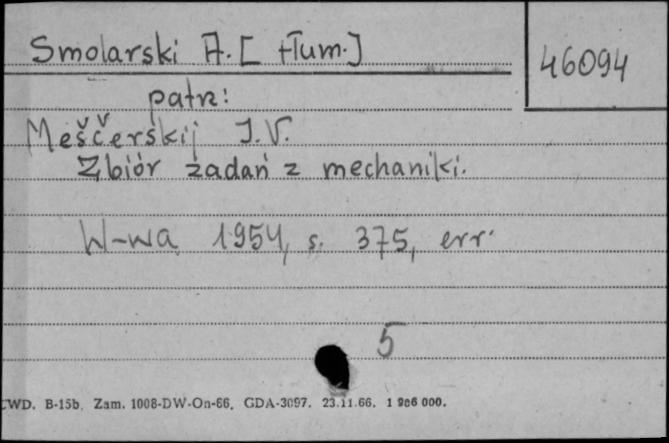 Smolarski A. [tłum.]
46094
patrz:
Meščerskij I. V.
Zbiór zadań z mechaniki.
W-wa 1954, s. 375, err.
5
CWD. B-15b. Zam. 1008-DW-On-66. GDA-3097. 23.11.66. 1 906 000.